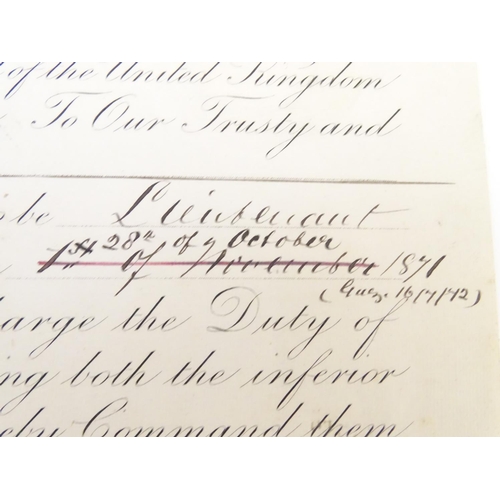 of the United Kingdom
To Our Trusty and
be Lieutenant
28th of October
1st of November 1871
(Gaz. 16/7/72)
arge the Duty of
ing both the inferior
eby Command them